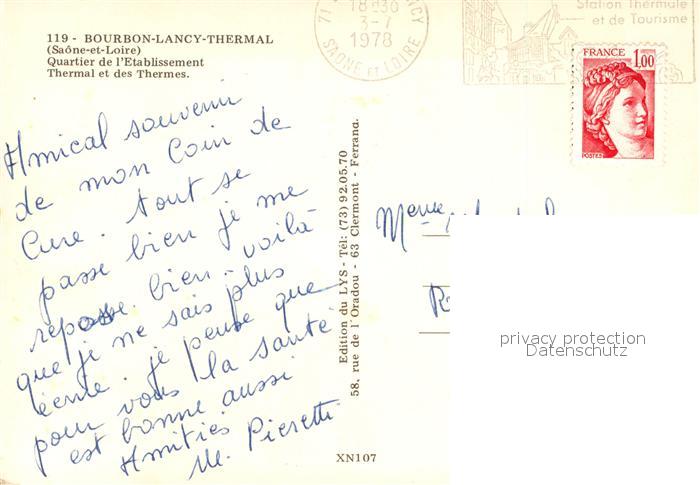 119 - BOURBON-LANCY-THERMAL
(Saône-et-Loire)
Quartier de l'Etablissement
Thermal et des Thermes.
Amical souvenir
de mon Coin de
Cure. tout se
passe bien je me
repose bien. voilà
que je ne sais plus
écrire. je pense que
pour vous la santé
est bonne aussi
Amitiés
M. Pieretti
XN107
Edition du LYS - Tél: (73) 92.05.70
58, rue de l'Oradou - 63 Clermont - Ferrand.
71 CY
18-30
3-7
1978
SAONE ET LOIRE
Station Thermale
et de Tourisme
FRANCE 1,00
POSTES
privacy protection
Datenschutz